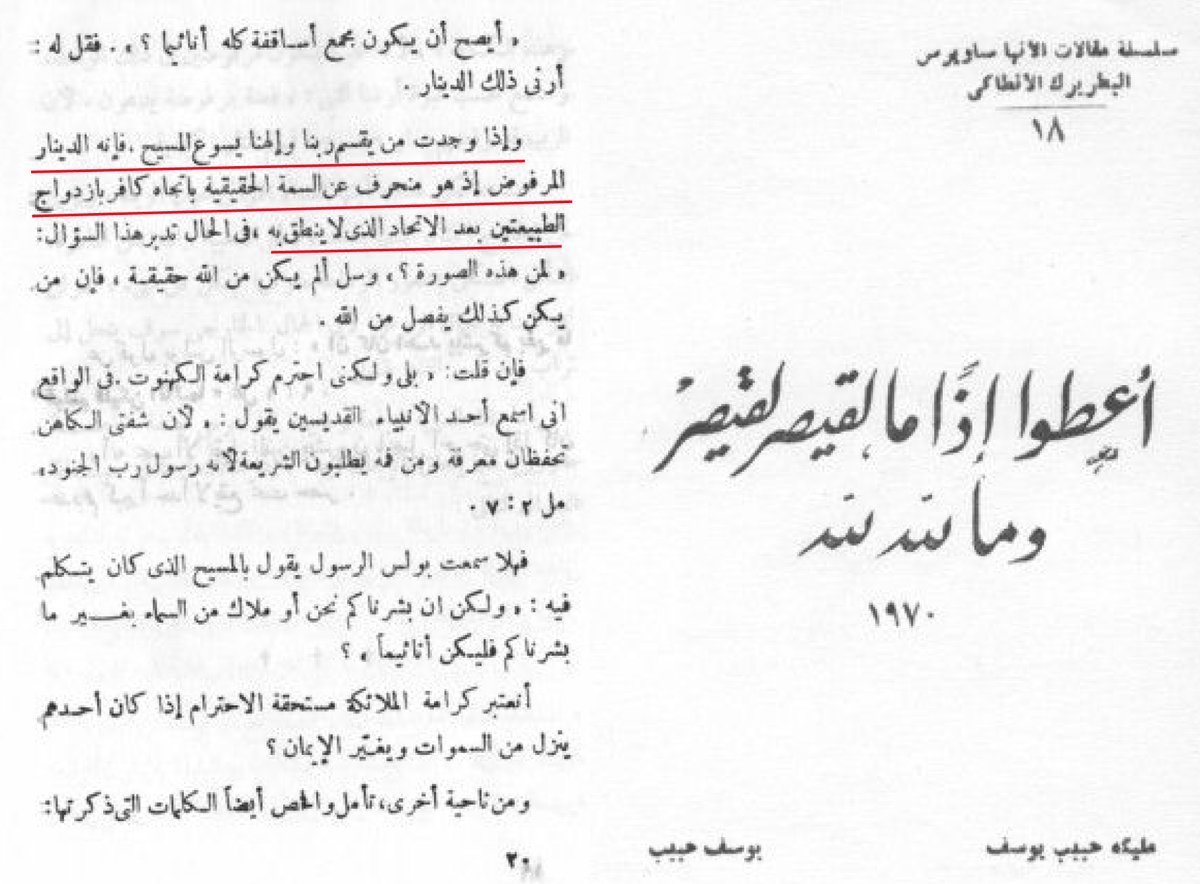 سلسلة مقالات الانبا ساويرس
البطريرك الانطاكى
١٨
أعطوا إذًا ما لقيصر لقيصر
وما لله لله
١٩٧٠
مليكه حبيب يوسف
يوسف حبيب
« أيصح أن يكون مجمع أساقفة كله أناثيما ؟ » . فقل له :
أرنى ذلك الدينار .
وإذا وجدت من يقسم ربنا وإلهنا يسوع المسيح ، فإنه الدينار
المرفوض إذ هو منحرف عن السمة الحقيقية باتجاه كافر بازدواج
الطبيعتين بعد الاتحاد الذى لا ينطق به ، فى الحال تدبر هذا السؤال :
« لمن هذه الصورة ؟ » وسل ألم يكن من الله حقيقة ، فإن من
يكن كذلك يفصل من الله .
فإن قلت : « بلى ولكنى احترم كرامة الكهنوت . فى الواقع
انى اسمع أحد الانبياء القديسين يقول : « لان شفتى الكاهن
تحفظان معرفة ومن فمه يطلبون الشريعة لأنه رسول رب الجنود »
مل ٢ : ٧ .
فهلا سمعت بولس الرسول يقول بالمسيح الذى كان يتكلم
فيه : « ولكن ان بشرناكم نحن أو ملاك من السماء بغير ما
بشرناكم فليكن أناثيماً » ؟
أنعتبر كرامة الملائكة مستحقة الاحترام إذا كان أحدهم
ينزل من السموات ويغيّر الإيمان ؟
ومن ناحية أخرى ، تأمل وافحص أيضاً الكلمات التى ذكرتها :
٢٠